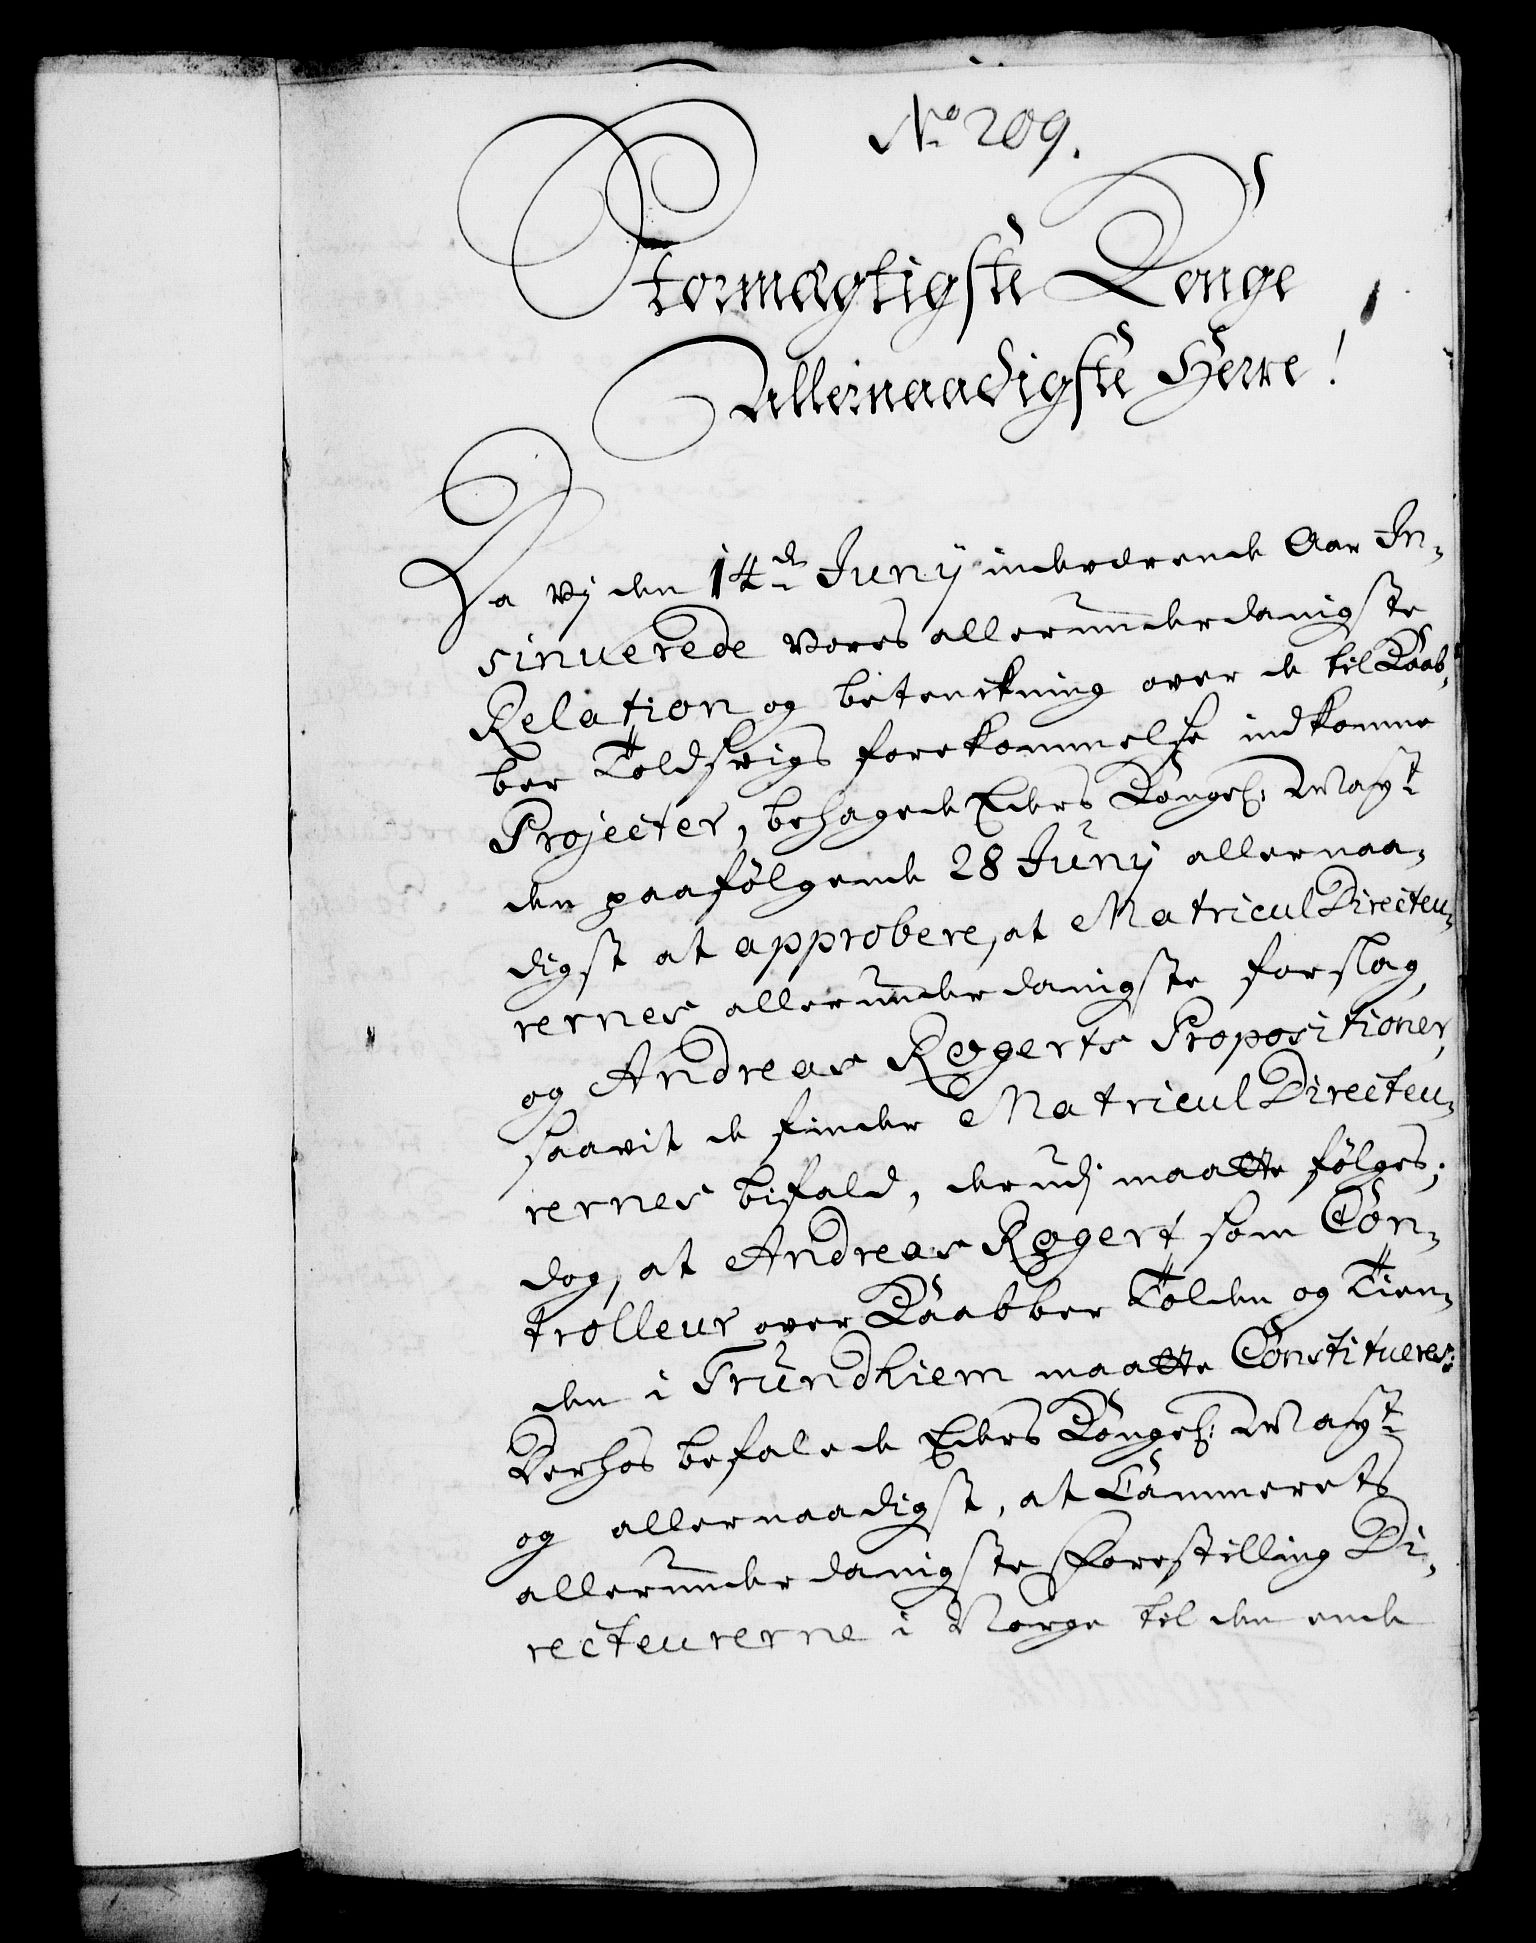 No 209.
Stormægtigste Konge
Allernaadigste Herre!
Da vj den 14de Junij indeværende Aar In-
sinuerede vores allerunderdanigste
Relation og betenckning over de til Kaab-
ber Toldsvigs forekommelse indkomne
Projecter, behagede Eders Kongel: Mayt
den paafølgende 28 Junij allernaa-
digst at approbere, at Matricul Directeu-
rernes allerunderdanigste forslag,
og Andreas Røgerts Propositioner,
saavit de finder Matricul Directeu-
rernes bifald, derudj maatte følges;
dog, at Andreas Røgert som Con-
trolleur over Kaabber Tolden og Tien-
den i Trundhiem maatte Constitueres:
Derhos befalede Eders Kongel: Mayt
og allernaadigst, at Cammerets
allerunderdanigste Forestilling Di-
recteurerne i Norge til den ende